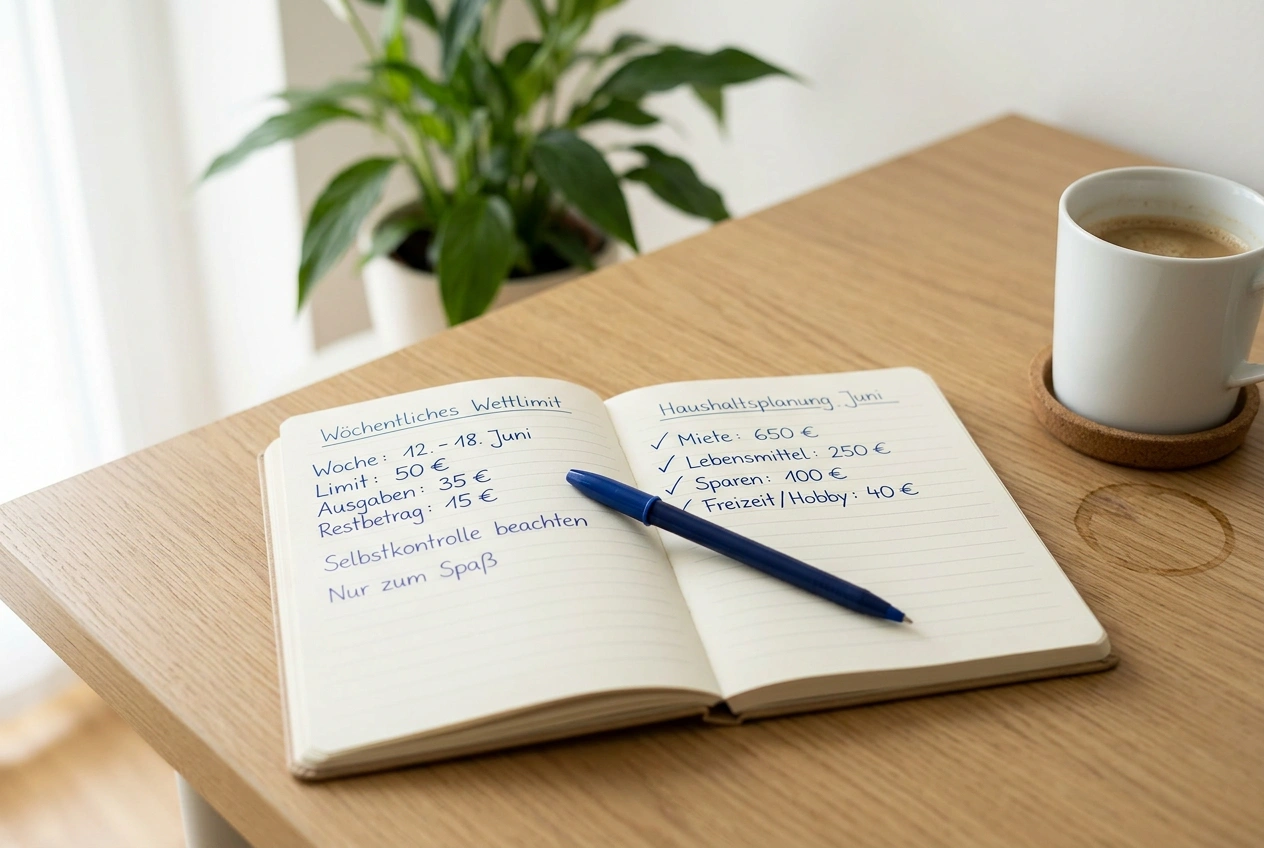 Wöchentliches Wettlimit
Woche: 12. - 18. Juni
Limit: 50 €
Ausgaben: 35 €
Restbetrag: 15 €
Selbstkontrolle beachten
Nur zum Spaß
Haushaltsplanung Juni
✓ Miete: 650 €
✓ Lebensmittel: 250 €
✓ Sparen: 100 €
✓ Freizeit/Hobby: 40 €